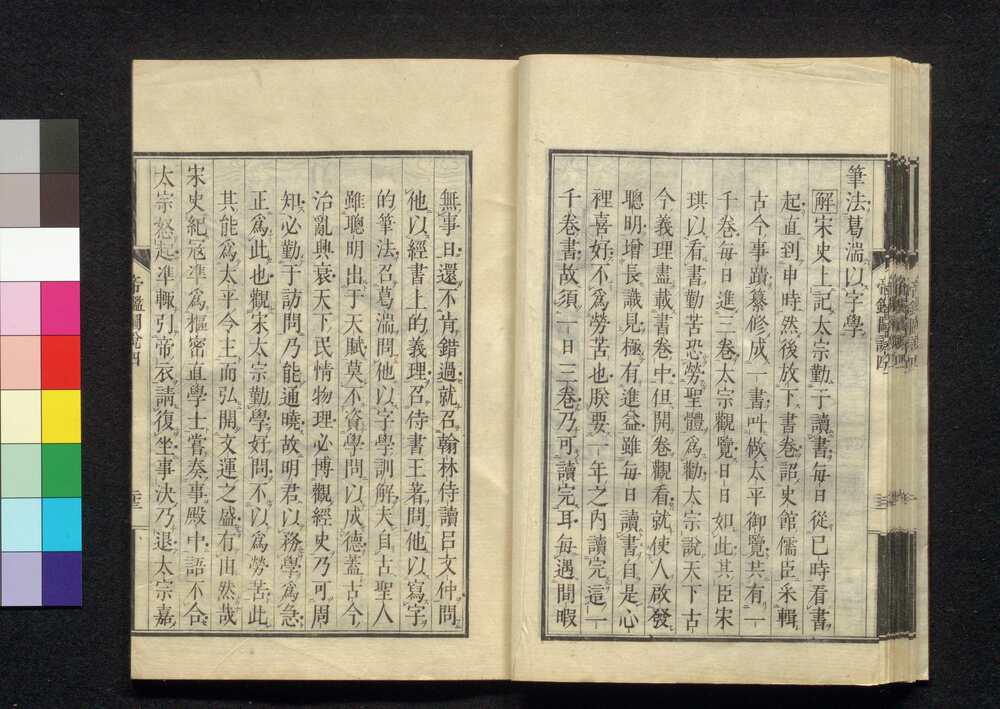 筆法葛湍以字學
解宋史上記太宗勤于讀書每日從巳時看書
起直到申時然後放下書卷詔史館儒臣采輯
古今事蹟纂修成一書叫做太平御覽共有一
千卷每日進三卷太宗觀覽日日如此其臣宋
琪以看書勤苦恐勞聖體爲勸太宗說天下古
今義理盡載書卷中但開卷觀看就使人啟發
聰明增長識見極有進益雖每日讀書自是心
裡喜好不爲勞苦也朕要一年之內讀完這一
千卷書故須一日三卷乃可讀完耳每遇閒暇
無事日還不肯錯過就召翰林侍讀呂文仲問
他以經書上的義理召侍書王著問他以寫字
的筆法召葛湍問他以字學訓解夫自古聖人
雖聰明出于天賦莫不資學問以成德蓋古今
治亂興衰天下民情物理必博觀經史乃可周
知必勤于訪問乃能通曉故明君以務學爲急
正爲此也觀宋太宗勤學好問不以爲勞苦此
其能爲太平令主而弘開文運之盛有由然哉
宋史紀寇準爲樞密直學士嘗奏事殿中語不合
太宗怒起準輒引帝衣請復坐事決乃退太宗嘉
帝鑑圖說四